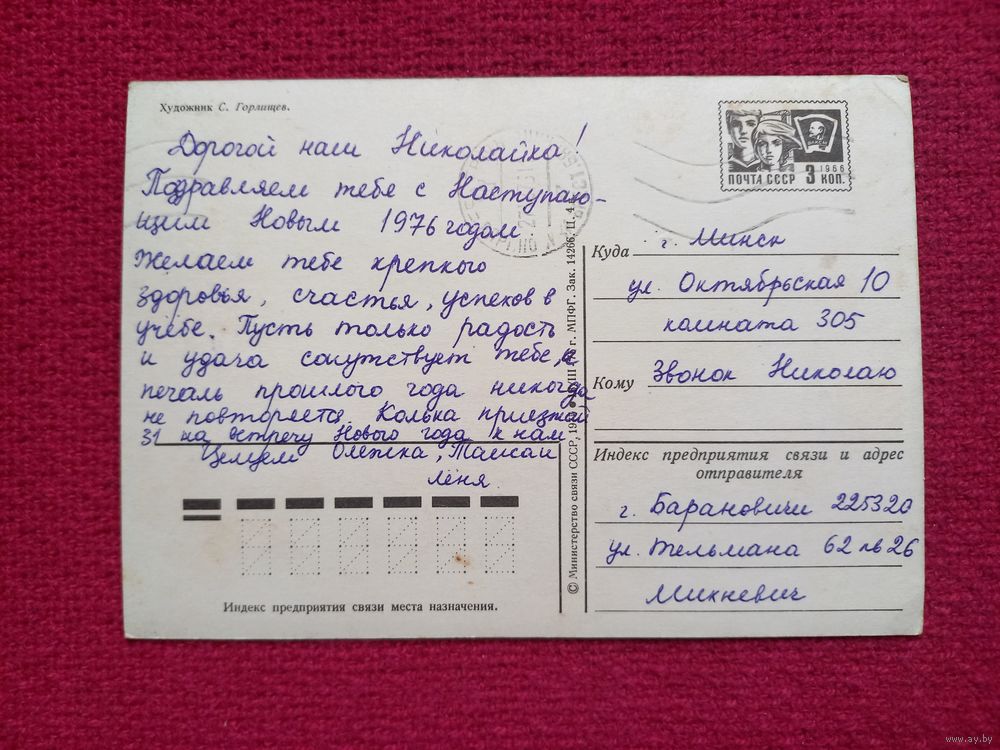 Художник С. Горлищев.
Дорогой наш Николайка!
Поздравляем тебе с Наступаю-
щим Новым 1976 годом.
Желаем тебе крепкого
здоровья, счастья, успехов в
учёбе. Пусть только радость
и удача сопутствует тебе, а
печаль прошлого года никогда
не повторяется. Колька приезжай
31 на встречу Нового года к нам
Целуем Олежка, Таисаи
Лёня.
Индекс предприятия связи места назначения.
© Министерство связи СССР, МПФГ. Зак. 14266. Ц. 4 к.
ПОЧТА СССР 3 КОП.
1966
ВЛКСМ
Куда г. Минск
ул. Октябрьская 10
комната 305
Кому Звонок Николаю
Индекс предприятия связи и адрес
отправителя
г. Барановичи 225320
ул. Тельмана 62 кв 26
Михневич
www.ay.by